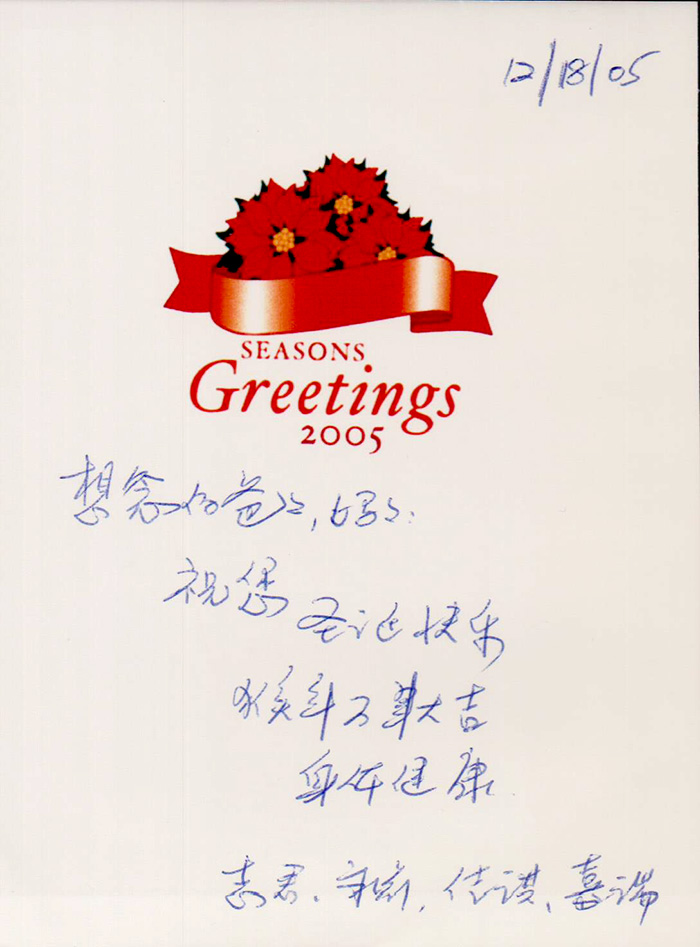 12/18/05
SEASONS
Greetings
2005
想念的爸爸，妈妈：
祝您
圣诞快乐
猴年万事大吉
身体健康
志君、